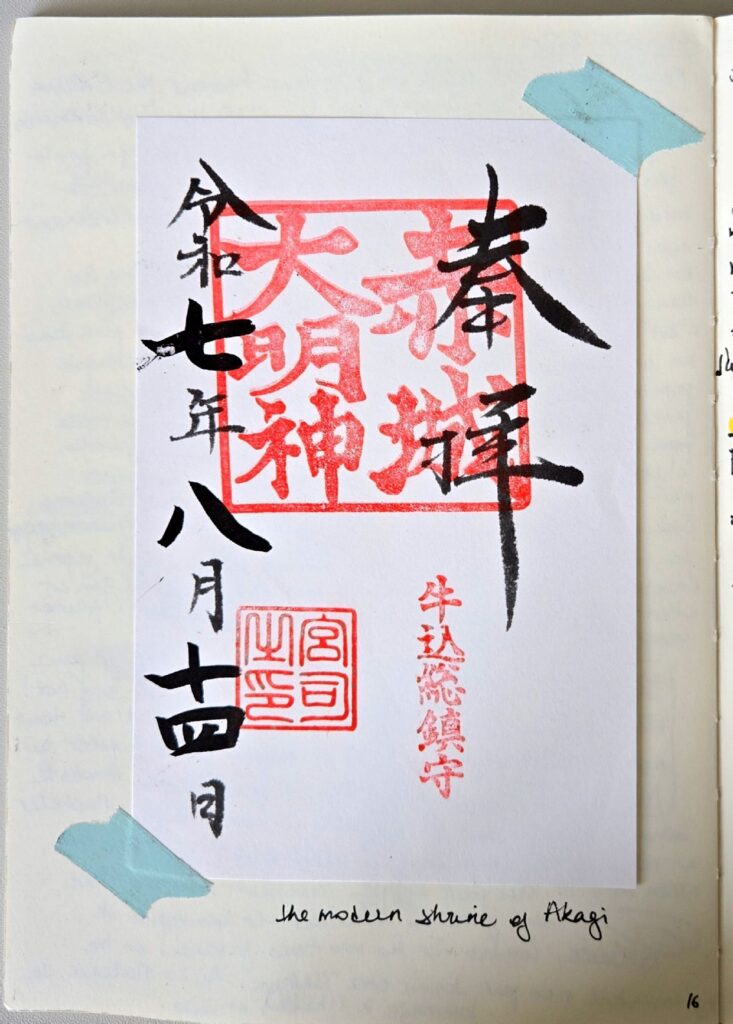 奉拝
赤城
大明神
牛込総鎮守
宮司
之印
令和七年八月十四日
the modern shrine of Akagi
16